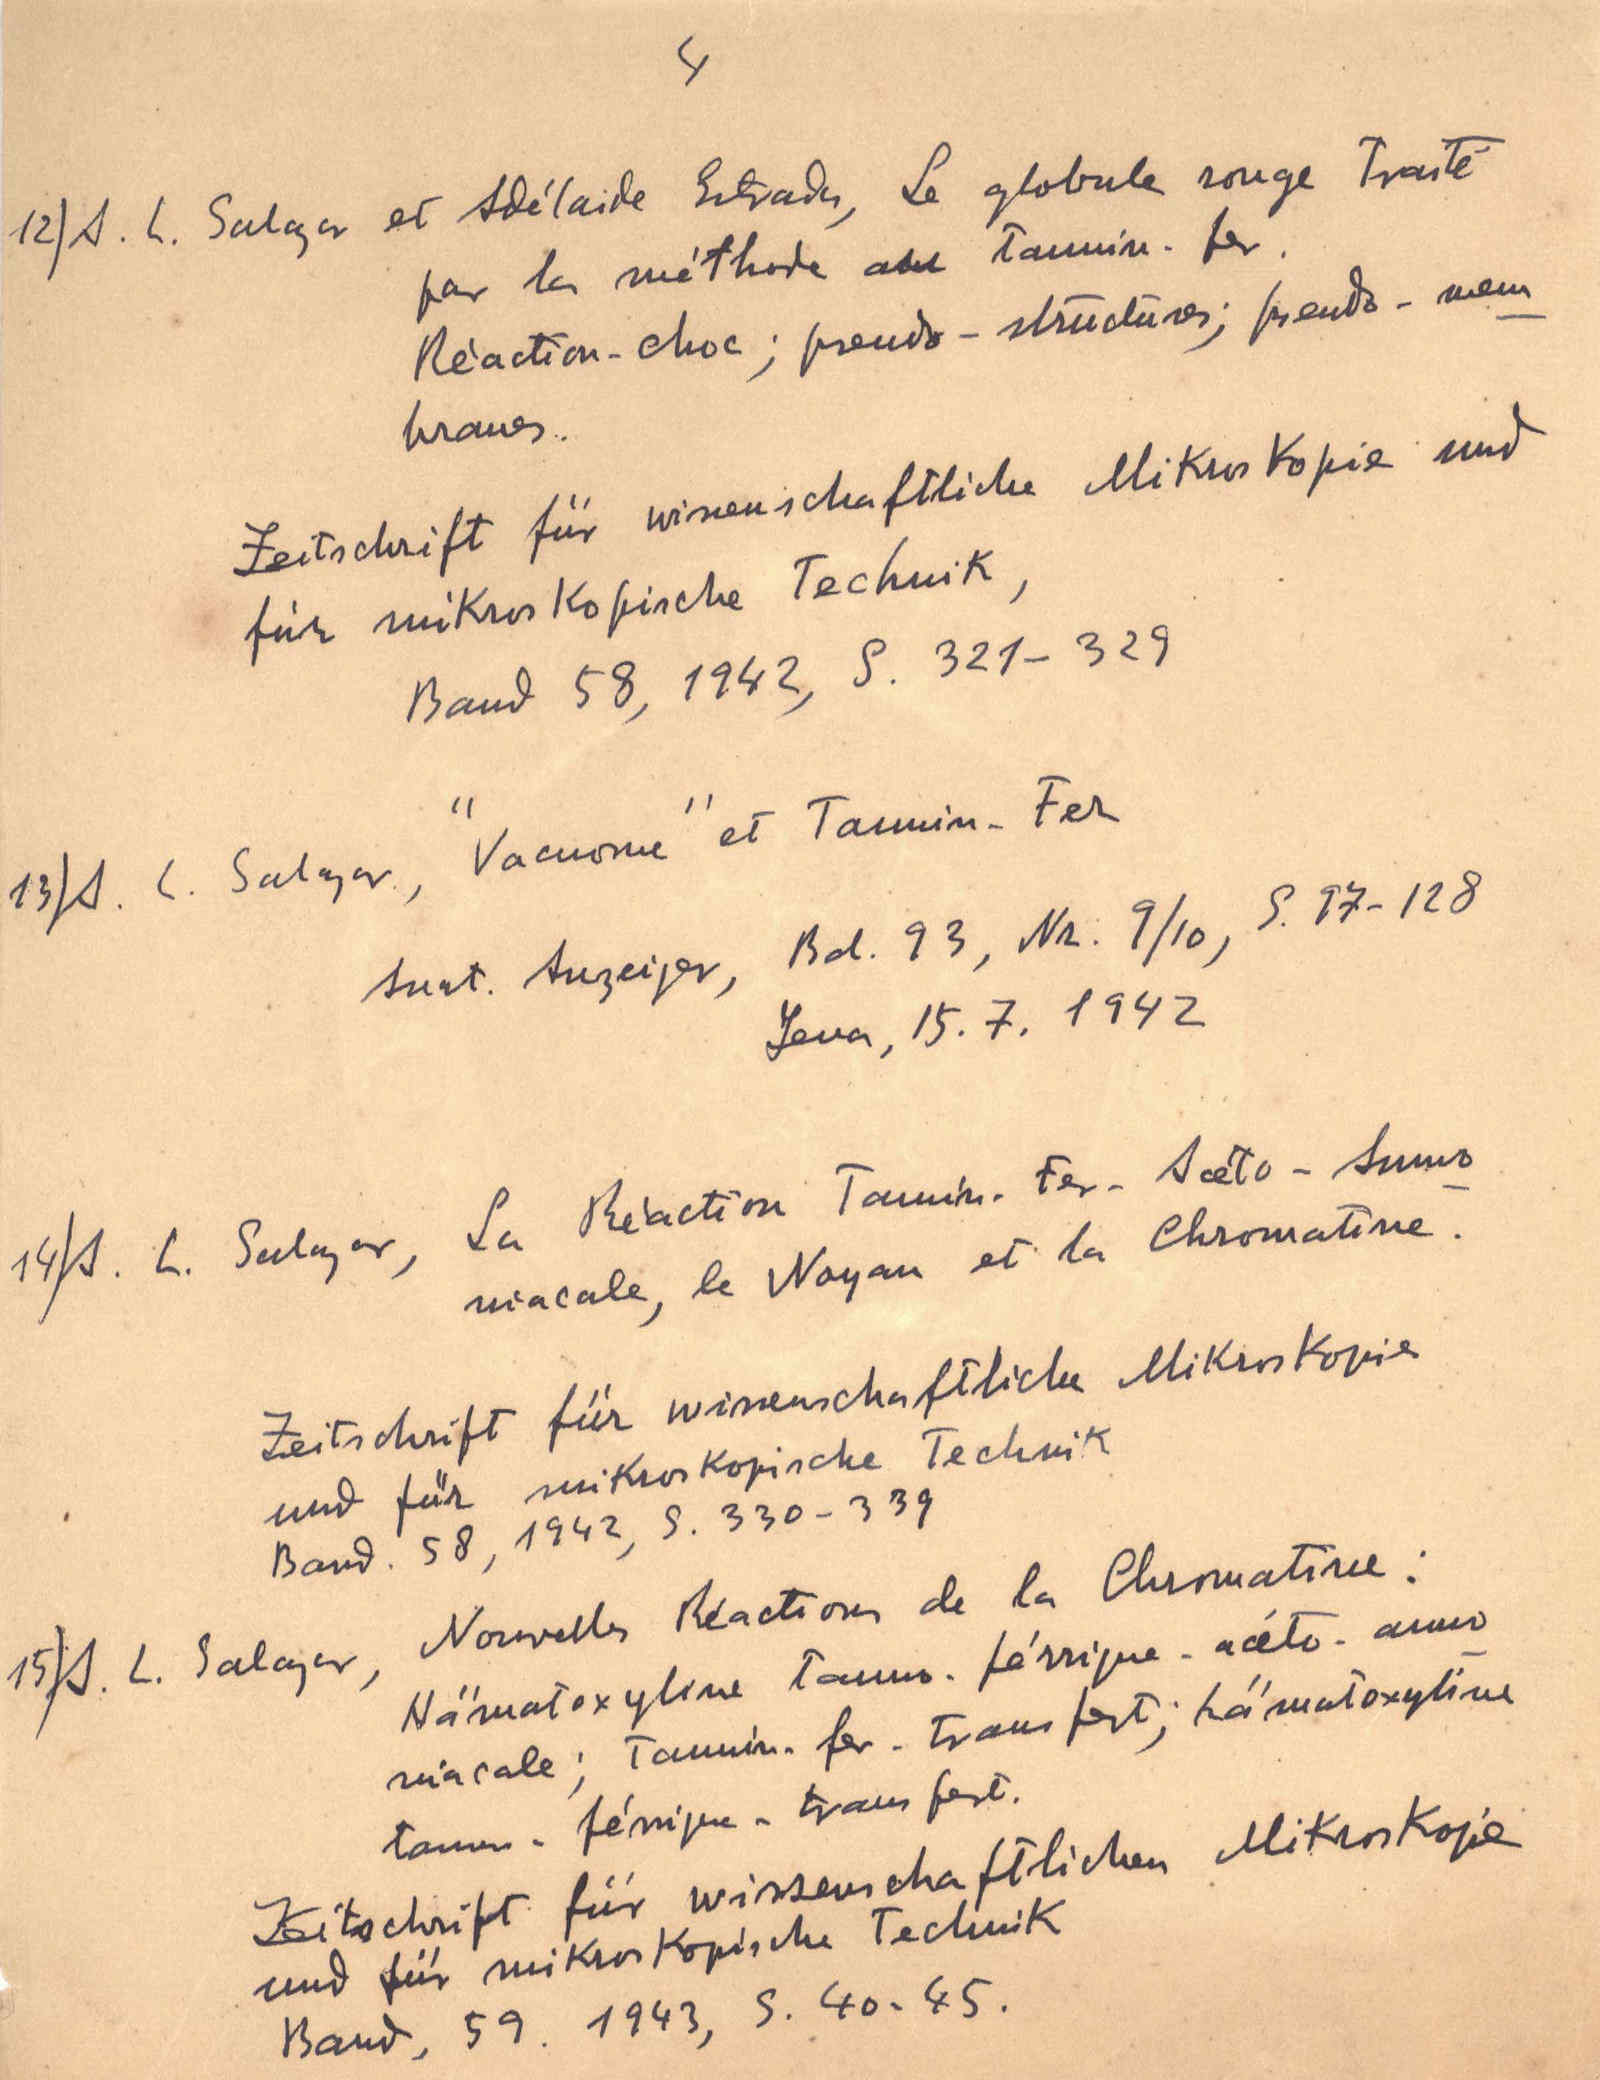 4
12) A. L. Salazar et Adélaide Estrada, Le globule rouge traité
par la méthode au Tannin-fer.
Réaction-choc; pseudo-structures; pseudo-mem
branes.
Zeitschrift für wissenschaftliche Mikroskopie und
für mikroskopische Technik,
Band 58, 1942, S. 321-329
13) A. L. Salazar, "Vacuome" et Tannin-Fer
Anat. Anzeiger, Bd. 93, Nr. 9/10, S. 97-128
Jena, 15.7.1942
14) A. L. Salazar, La Réaction Tannin-Fer-Acéto-Ammo
niacale, le Noyau et la Chromatine.
Zeitschrift für wissenschaftliche Mikroskopie
und für mikroskopische Technik
Band. 58, 1942, S. 330-339
15) A. L. Salazar, Nouvelles Réactions de la Chromatine:
Hämatoxyline tanno-férrique-acéto-ammo
niacale; Tannin-fer-transfert; hämatoxyline
tanno-férrique-transfert.
Zeitschrift für wissenschaftlichen Mikroskopie
und für mikroskopische Technik
Band, 59. 1943, S. 40-45.